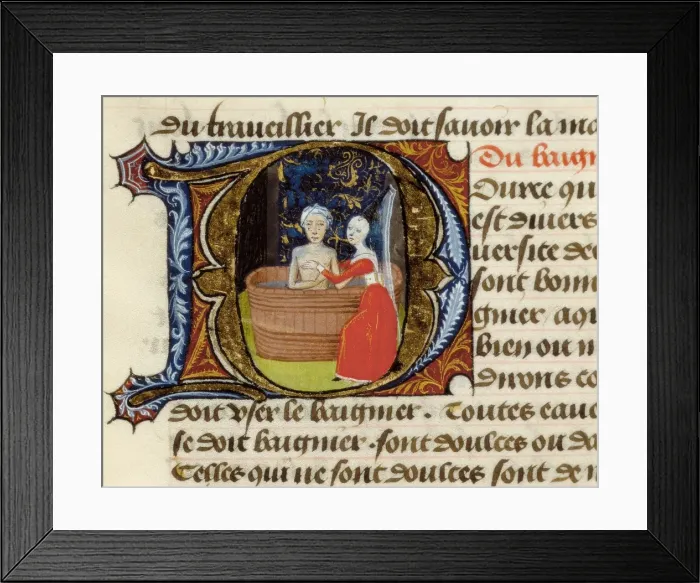 du traveillier Il doit savoir la ma
Du baign
Duree qu
est divers
versite de
sont bonn
gnier aqu
bien ou n
dirons co
doit user le baignier. Toutes eaue
se doit baignier. sont doulces ou da
Celles qui ne sont doulces sont de n